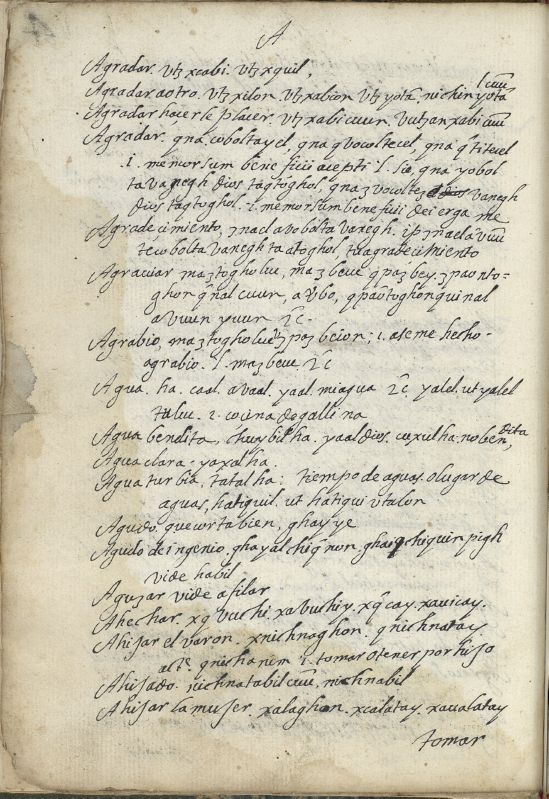 A
Agradar. utz xcabi. utz xquil,
Agradar a otro. utz xilon. utz xabion utz yota, nichin yota cuu
Agradar hacerse placer. utz xabi cuun. vutzan xabi cuu
Agradar. qna coboltayel, qna qvocoltecel, qna q titecel
.i. memor sum beneficii acepti l. sic, qna yobol
ta vanegh dios tagtoghol, qna z vocoltez vanegh
dios tagtoghol. i. memor sum beneficii dei erga me
Agradecimiento, znael avobolta vanegh. ip znaela vuu
tecobolta vanegh ta atoghol, tu agradecimiento
Agraviar maztogholuc, maz beuc q paz bey. z pao nto-
ghon q nal cuun, a vbo, q pau toghon qui nal
a vuun yuun &c.
Agrabio, maztogholuc utz paz bcion; i. aseme hecho
agrabio. l. maz beuc &c
Agua. ha. caal. avaal. yaal. mi agua &c yalel. ut yalel
tuluc. i. cocina de gallina
Agua bendita, chuybil ha. yaal dios. cuxul ha. no ben, dita
Agua clara. yaxal ha
Agua turbia, tatal ha: tiempo de aguas. o lugar de
aguas, hatiquil. ut hatiqui vtalon
Agudo. que corta bien, ghay ye
Agudo de ingenio, ghayal chiq non. ghai q chiquin pigh
vide habil
Aguzar vide afilar
Ahechar. xq vuchi. xa vuchiy. xq cay. xauicay.
Ahijar el varon. xnichnaghon. q nichnatay.
act. q nichanem i. tomar o tener por hijo
Ahijado. nichnatabil cuu, nichnabil
Ahijar la mujer. xalaghon. xcalatay. xaualatay
tomar